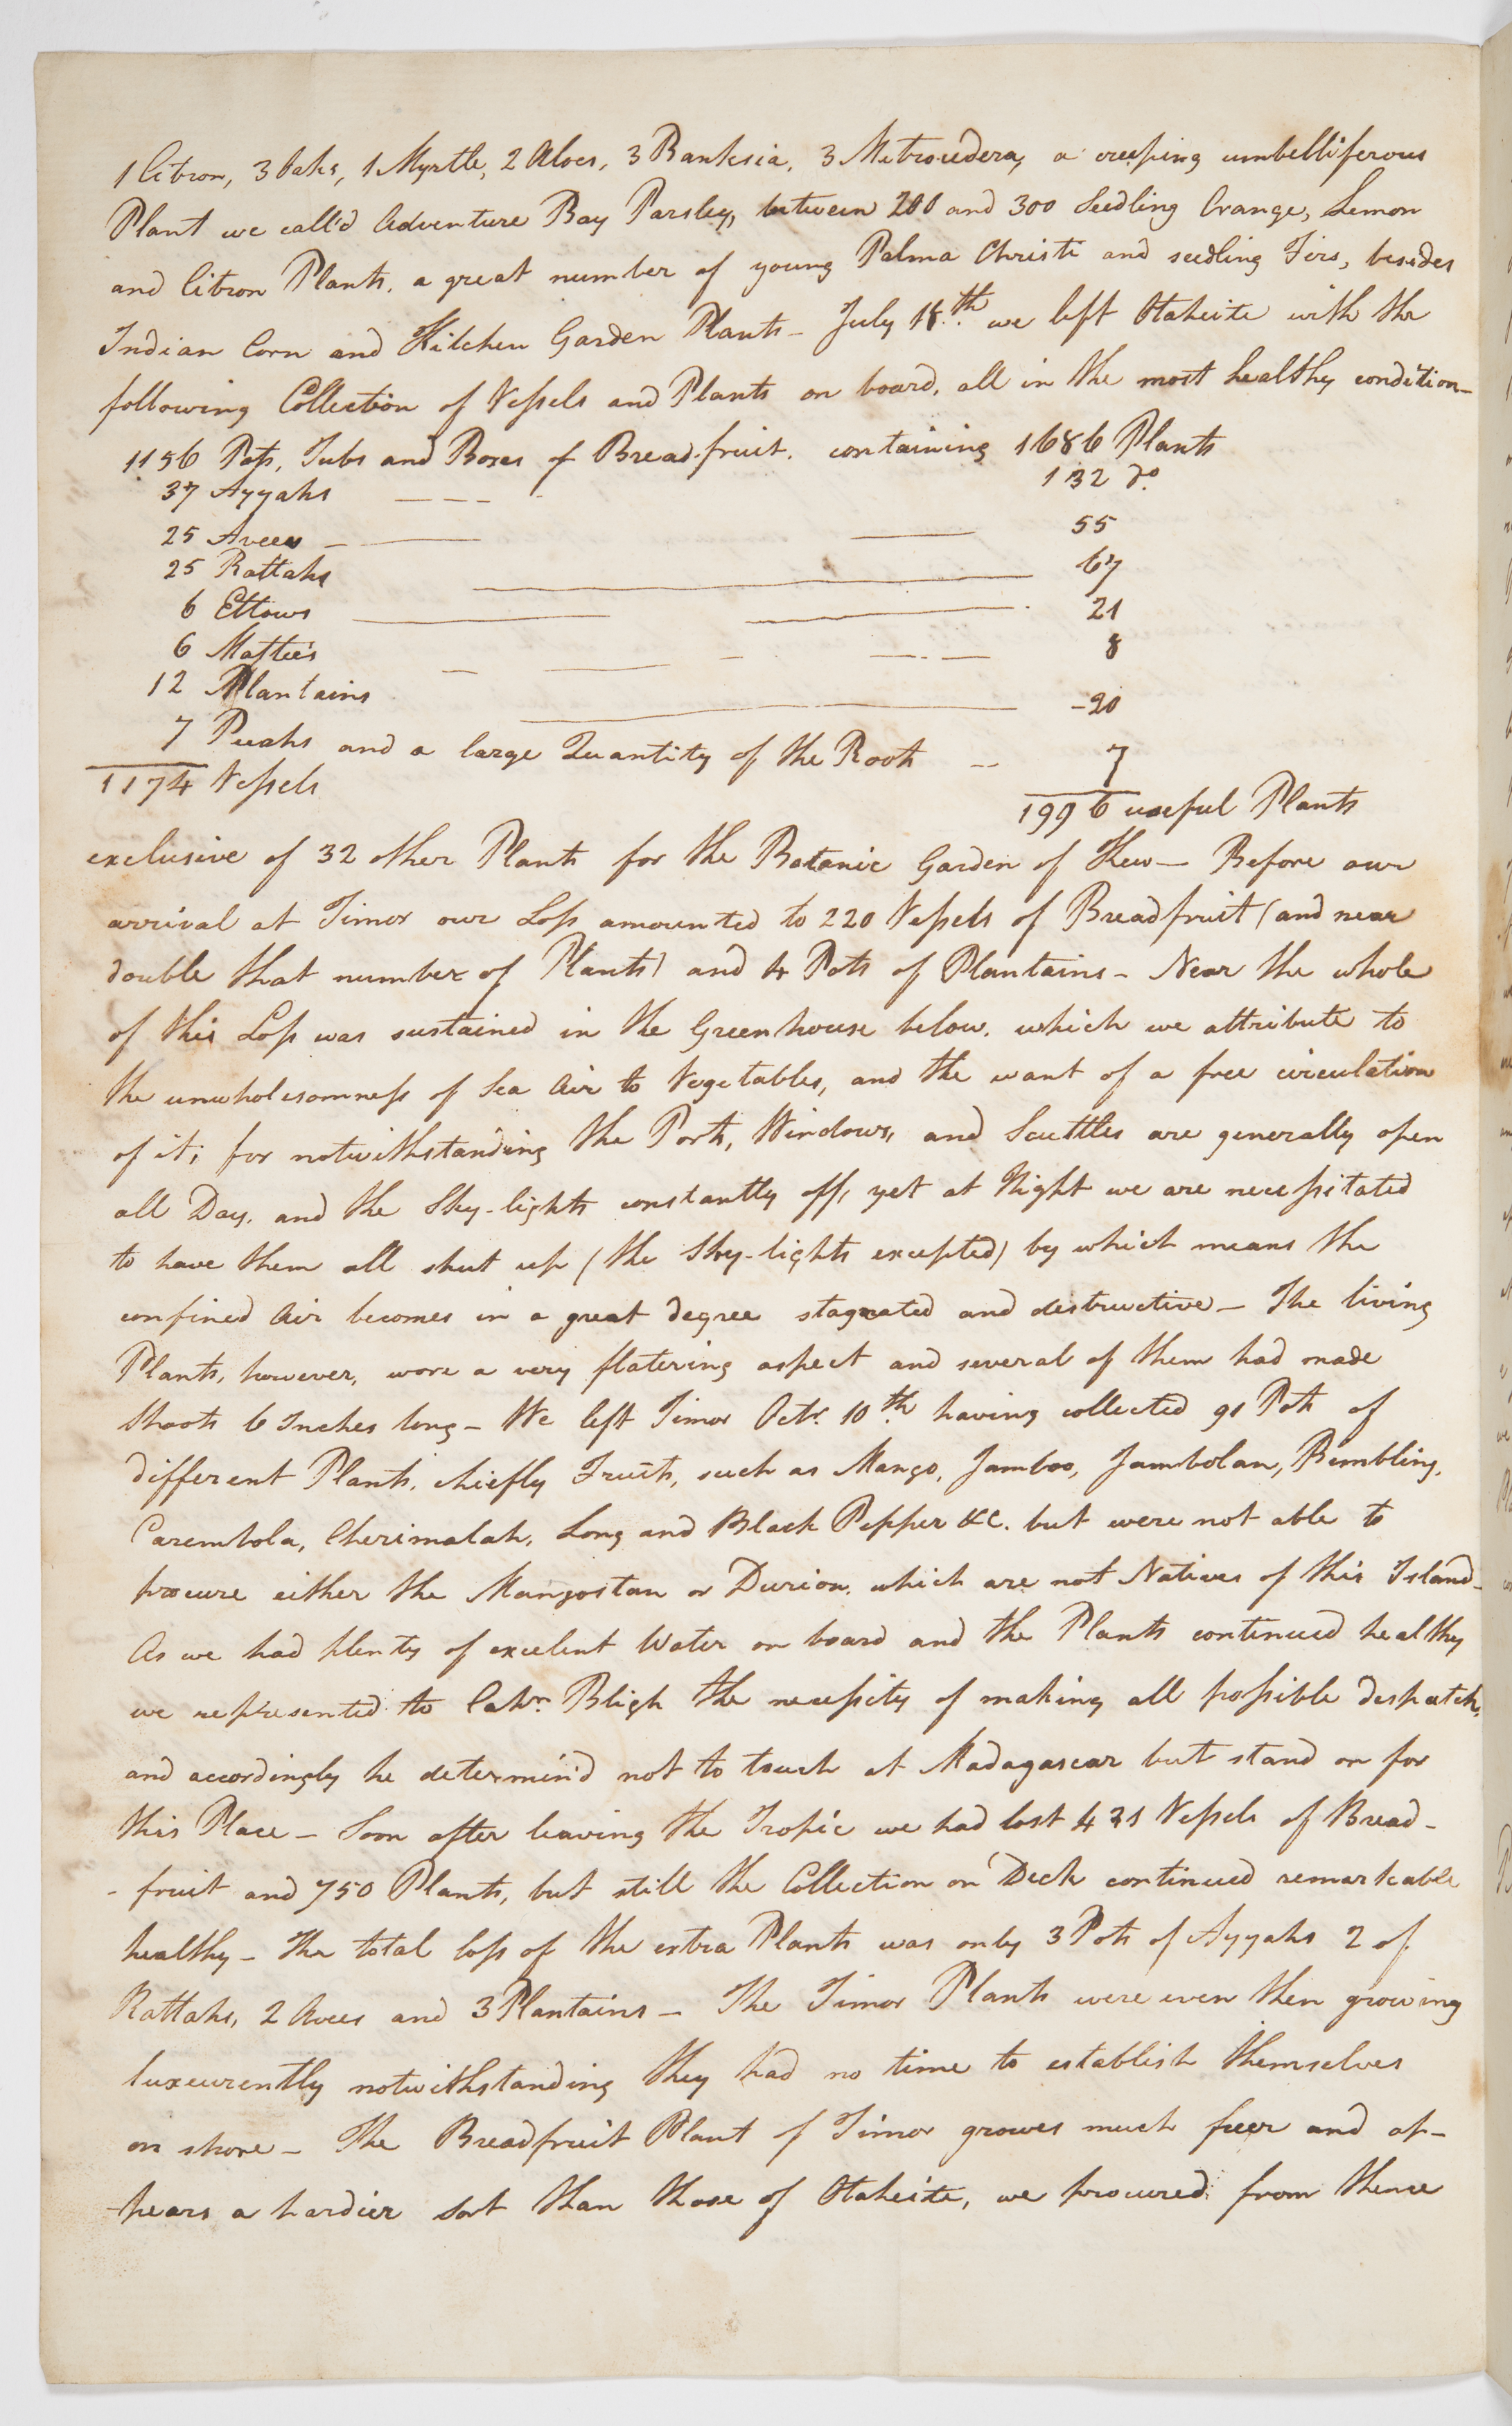 1 Citron, 3 Oaks, 1 Myrtle, 2 Aloes, 3 Banksia, 3 Metrocedera, a creeping umbelliferous
Plant we call'd Adventure Bay Parsley, between 200 and 300 Seedling Orange, Lemon
and Citron Plants, a great number of young Palma Christi and seedling Firs, besides
Indian Corn and Kitchen Garden Plants - July 18.th we left Otaheite with the
following Collection of Vessels and Plants on board, all in the most healthy condition -
1156 Pots, Tubs and Boxes of Bread-fruit, containing 1686 Plants
37 Ayyahs — — — 132 do.
25 Avees — — 55
25 Rattahs — 67
6 Ettows — — 21
6 Mattee's — — 8
12 Plantains — 20
7 Peeahs and a large Quantity of the Roots -- 7
1174 Vessels
1996 useful Plants
exclusive of 32 other Plants for the Botanic Garden of Kew — Before our
arrival at Timor our Loss amounted to 220 Vessels of Breadfruit (and near
double that number of Plants) and 4 Pots of Plantains - Near the whole
of this Loss was sustained in the Greenhouse below, which we attribute to
the unwholesomness of Sea Air to Vegetables, and the want of a free circulation
of it; for notwithstanding the Ports, Windows, and Scuttles are generally open
all Day, and the Sky-lights constantly off, yet at Night we are necessitated
to have them all shut up (the Sky-lights excepted) by which means the
confined Air becomes in a great degree stagnated and destructive - The living
Plants, however, wore a very flatering aspect and several of them had made
Shoots 6 Inches long - We left Timor Octr. 10th. having collected 91 Pots of
different Plants, chiefly Fruits, such as Mango, Jamboo, Jambolan, Bembling,
Carembola, Cherimalah, Long and Black Pepper &c. but were not able to
procure either the Mangostan or Durion, which are not Natives of this Island -
As we had plenty of excelent Water on board and the Plants continued healthy
we represented to Captn. Bligh the necessity of making all possible despatch,
and accordingly he determin'd not to touch at Madagascar but stand on for
this Place - Soon after leaving the Tropic we had lost 431 Vessels of Bread-
- fruit and 750 Plants, but still the Collection on Deck continued remarkable
healthy - The total loss of the extra Plants was only 3 Pots of Ayyahs 2 of
Rattahs, 2 Avees and 3 Plantains - The Timor Plants were even then growing
luxeurently notwithstanding they had no time to establish themselves
on shore - The Breadfruit Plant of Timor growes much freer and ap-
-pears a hardier sort than those of Otaheite, we procured from thence